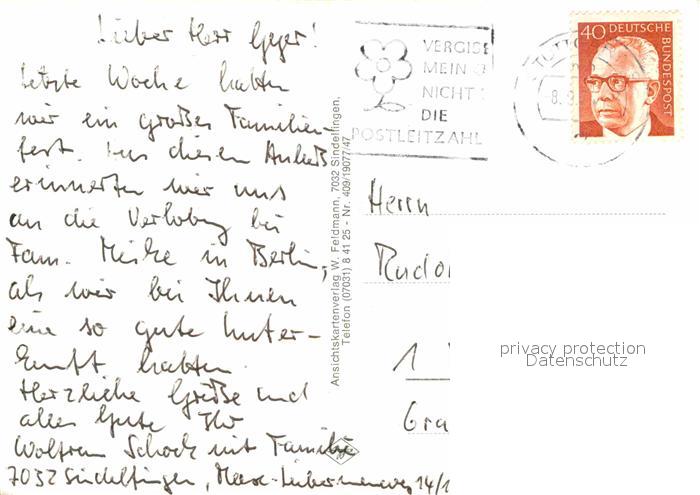 Lieber Herr Geyer!
Letzte Woche hatten
wir ein großes Familien-
fest. Aus diesem Anlaß
erinnerten wir uns
an die Verlobung bei
Fam. in Berlin,
als wir bei Ihnen
eine so gute Unter-
kunft hatten.
Herzliche Grüße und
alles Gute Ihr
Wolfram Schock mit Familie
7032 Sindelfingen, 14/1
Ansichtskartenverlag W. Feldmann, 7032 Sindelfingen,
Telefon (07031) 8 41 25 - Nr. 409/19077/47
VERGISS
MEIN
NICHT
DIE
POSTLEITZAHL
8.
40 DEUTSCHE
BUNDESPOST
Herrn
Rudol
1
Gra
privacy protection
Datenschutz